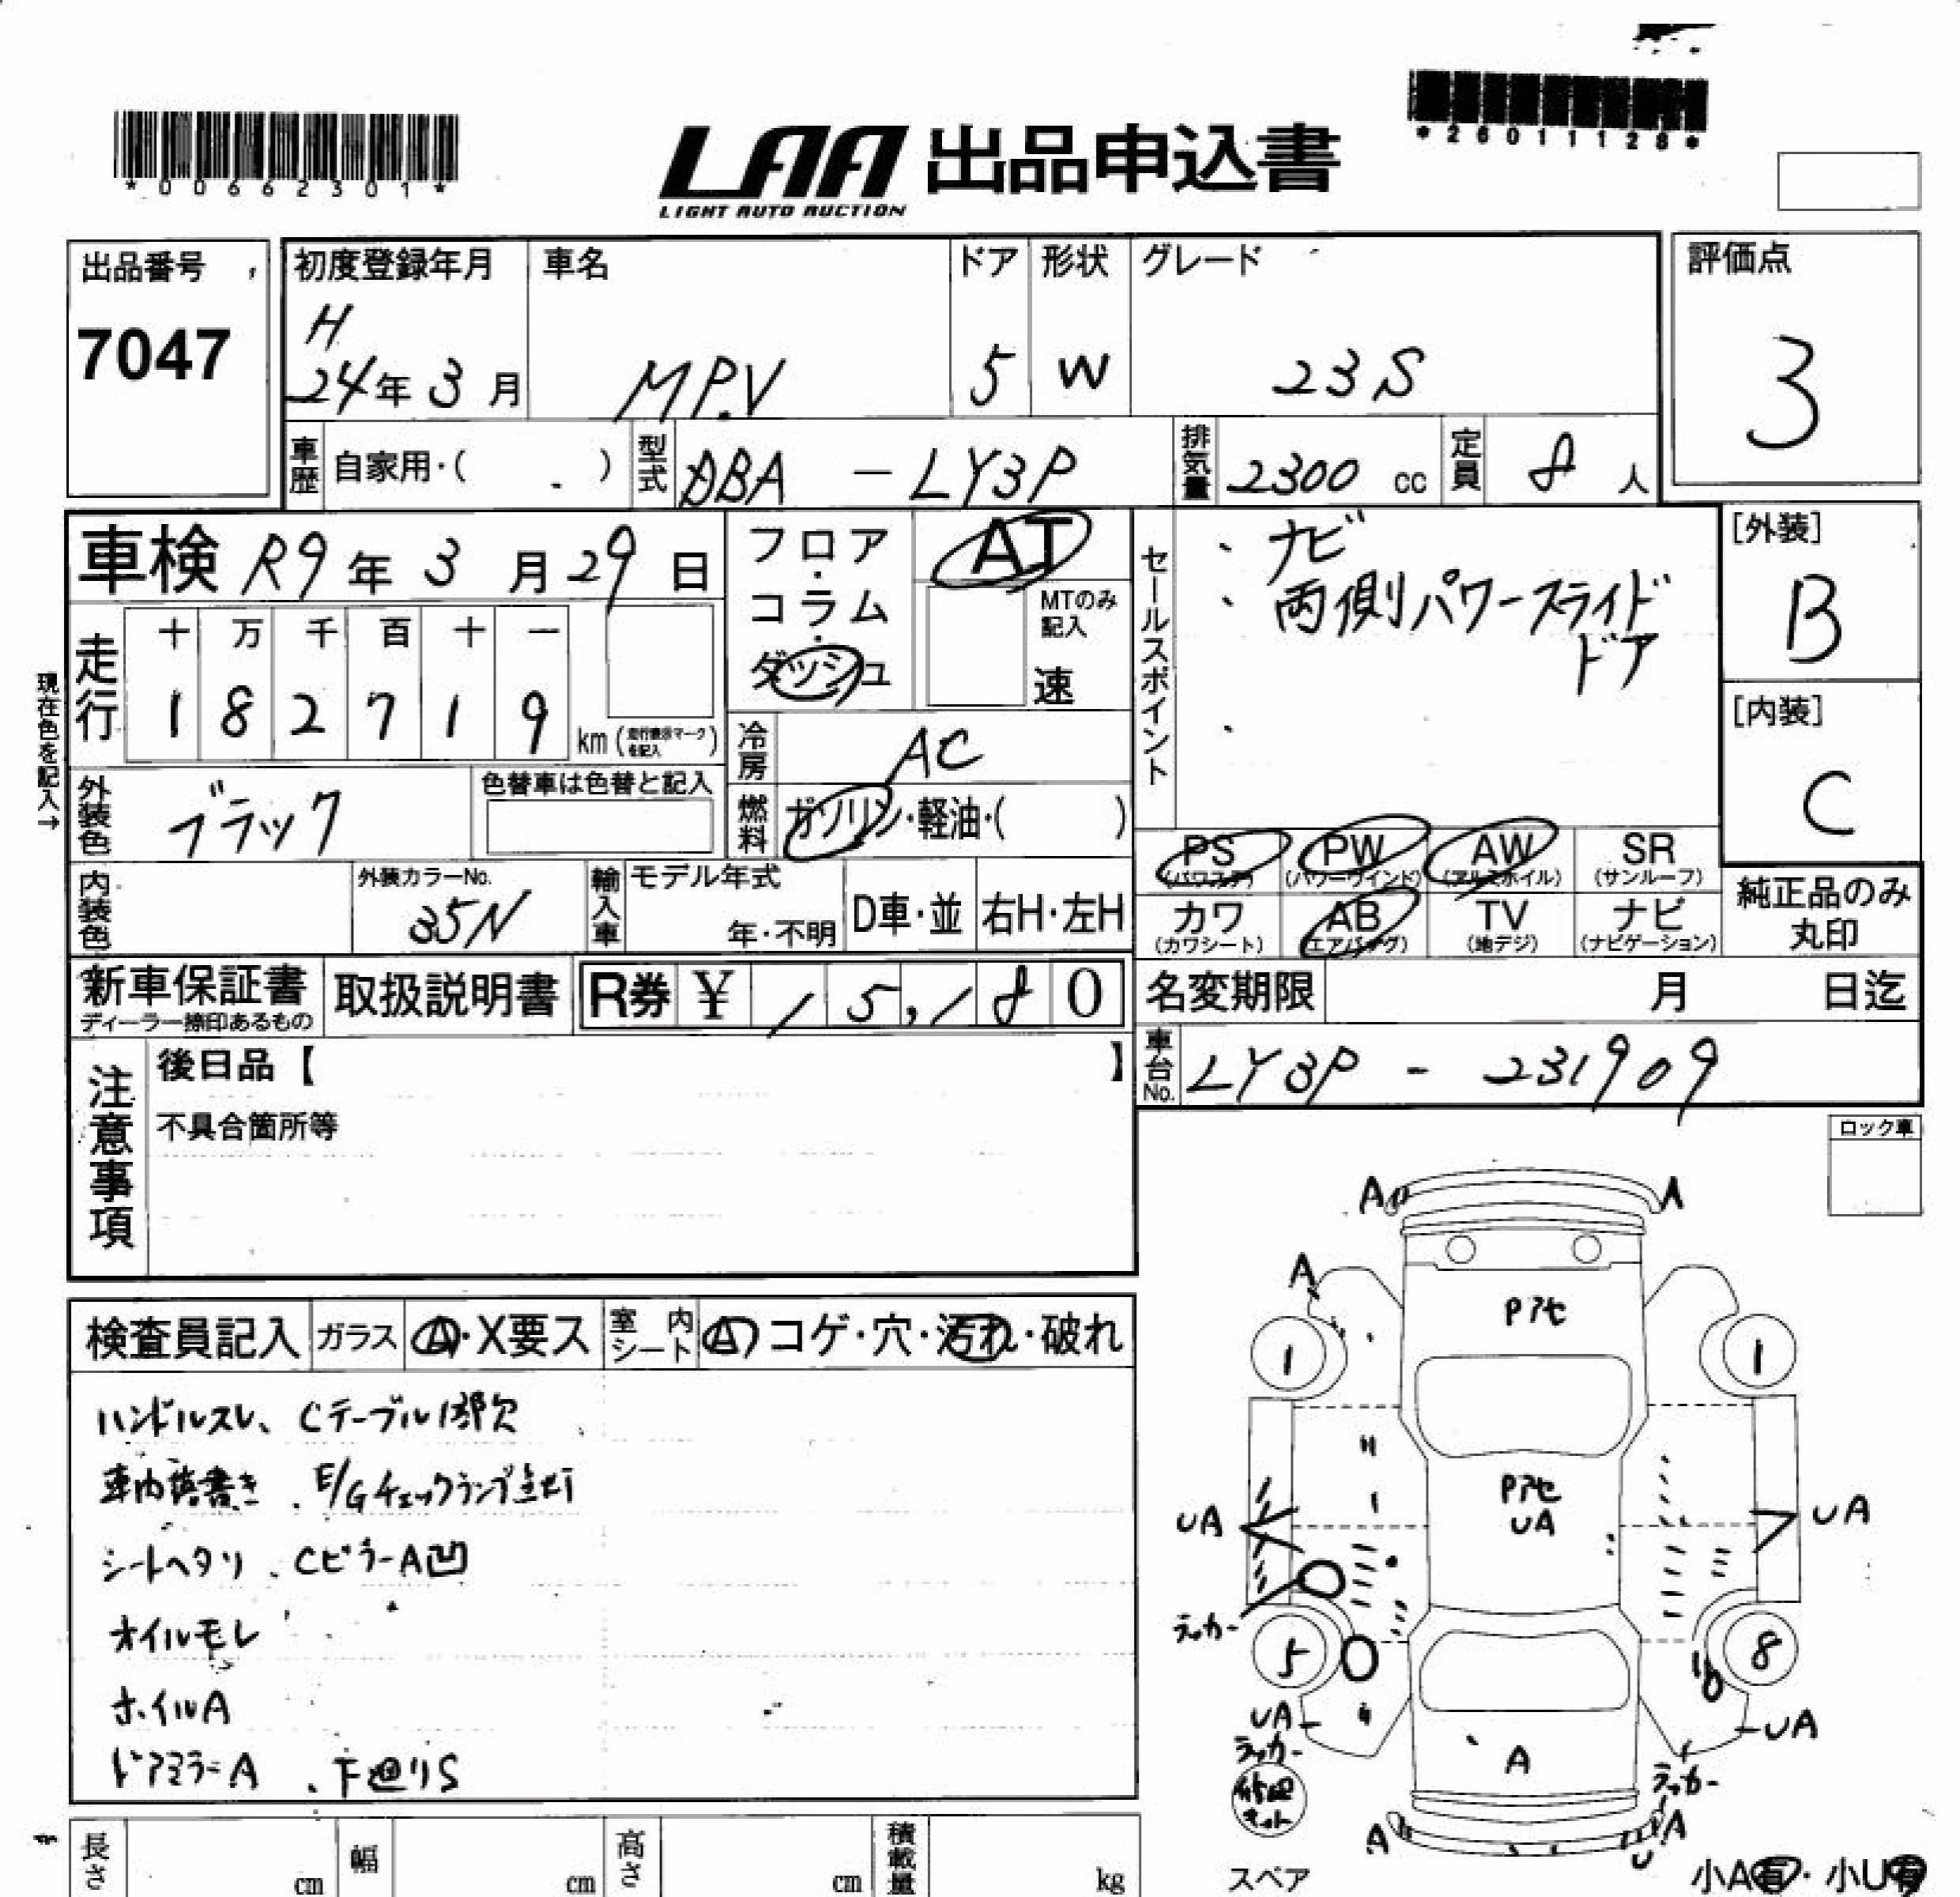 *00662301*
LAA 出品申込書
LIGHT AUTO AUCTION
*26011128*
出品番号
7047
初度登録年月
H
24年 3月
車名
MPV
ドア
5
形状
W
グレード
23S
評価点
3
車歴
自家用・( )
型式
DBA - LY3P
排気量
2300 cc
定員
8 人
車検 R9年 3月 29日
フロア・コラム・ダッシュ
AT
MTのみ記入
速
セールスポイント
・ナビ
・両側パワースライド
ドア
・
[外装]
B
[内装]
C
現在色を記入→
走行
十 万 千 百 十 一
1 8 2 7 1 9
km (走行表示マークを記入)
冷房
AC
燃料
ガソリン・軽油・( )
外装色
ブラック
色替車は色替と記入
PS (パワステ)
PW (パワーウインド)
AW (アルミホイル)
SR (サンルーフ)
カワ (カワシート)
AB (エアバッグ)
TV (地デジ)
ナビ (ナビゲーション)
純正品のみ丸印
内装色
外装カラーNo.
35N
輸入車
モデル年式
年・不明
D車・並
右H・左H
新車保証書
ディーラー捺印あるもの
取扱説明書
R券 ¥ 15,180
名変期限
月 日迄
車台No.
LY3P - 231909
注意事項
後日品【 】
不具合箇所等
ロック車
検査員記入
ガラス
A・X要ス
室内シート
A コゲ・穴・汚れ・破れ
ハンドルスレ、Cテーブル1部欠
車内落書き、E/Gチェックランプ点灯
シートヘタリ、CピラーA凹
オイルモレ
ホイルA
ドアミラーA、下廻りS
A A
A
Pアセ
1 1
Pアセ
UA
UA UA
ラッカー
5 8
UA UA
ラッカー
A
ラッカー
修理キット
A A
U
スペア
小A有・小U有
長さ cm
幅 cm
高さ cm
積載量 kg